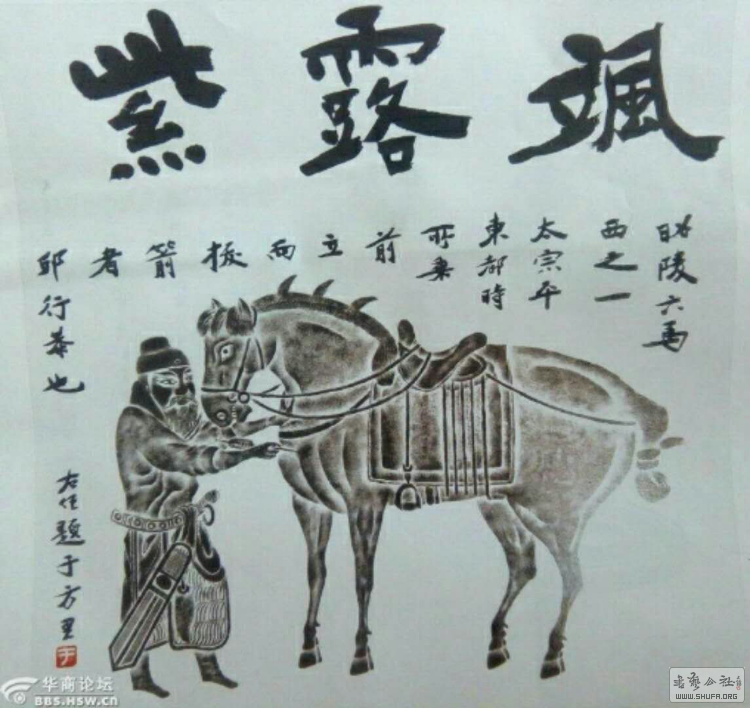 颯露紫
昭陵六馬
西之一
太宗平
東都時
所乗
前
立
而
拔
箭
者
邱行恭也
右任題于方里
于
华商论坛
BBS.HSW.CN
书艺公社
WWW.SHUFA.ORG